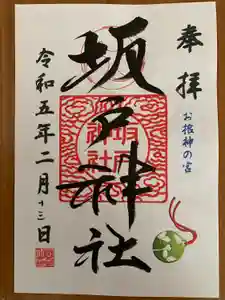 奉拝
お捨神の宮
坂戸神社
令和五年二月十三日